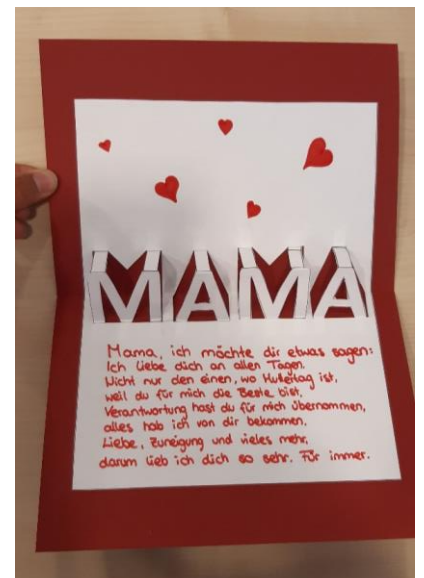 MAMA
Mama, ich möchte dir etwas sagen:
Ich liebe dich an allen Tagen.
Nicht nur den einen, wo Muttertag ist,
weil du für mich die Beste bist.
Verantwortung hast du für mich übernommen,
alles hab ich von dir bekommen.
Liebe, Zuneigung und vieles mehr,
darum lieb ich dich so sehr. Für immer.